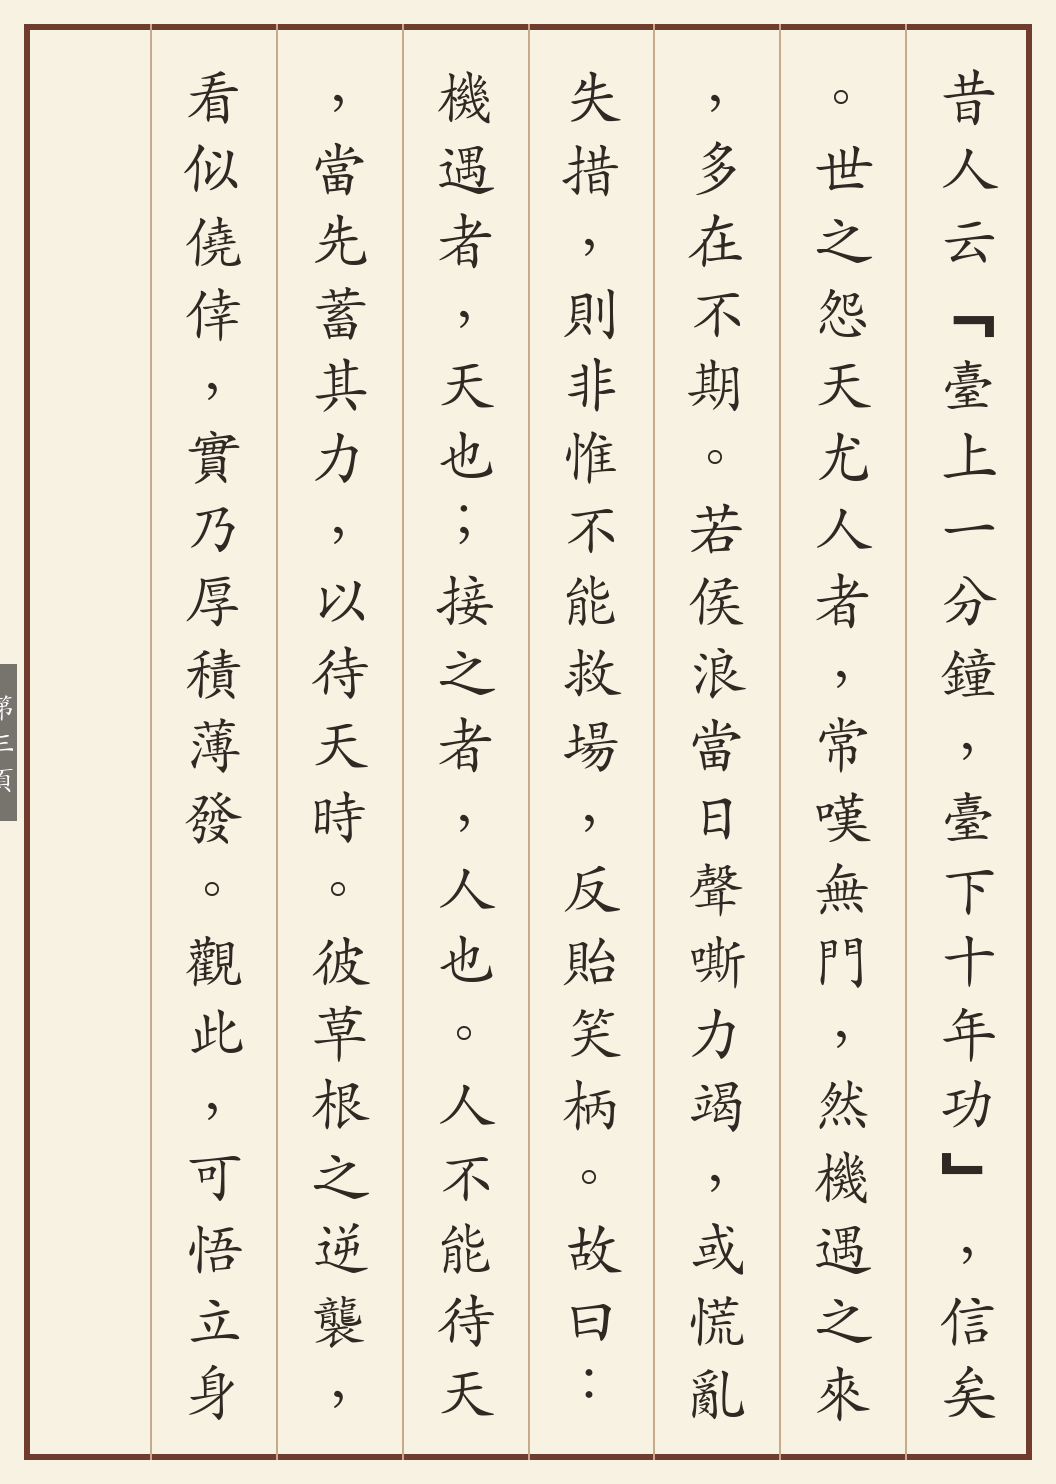 昔人云『臺上一分鐘，臺下十年功』，信矣
。世之怨天尤人者，常嘆無門，然機遇之來
，多在不期。若侯浪當日聲嘶力竭，或慌亂
失措，則非惟不能救場，反貽笑柄。故曰：
機遇者，天也；接之者，人也。人不能待天
，當先蓄其力，以待天時。彼草根之逆襲，
看似僥倖，實乃厚積薄發。觀此，可悟立身
第三頁